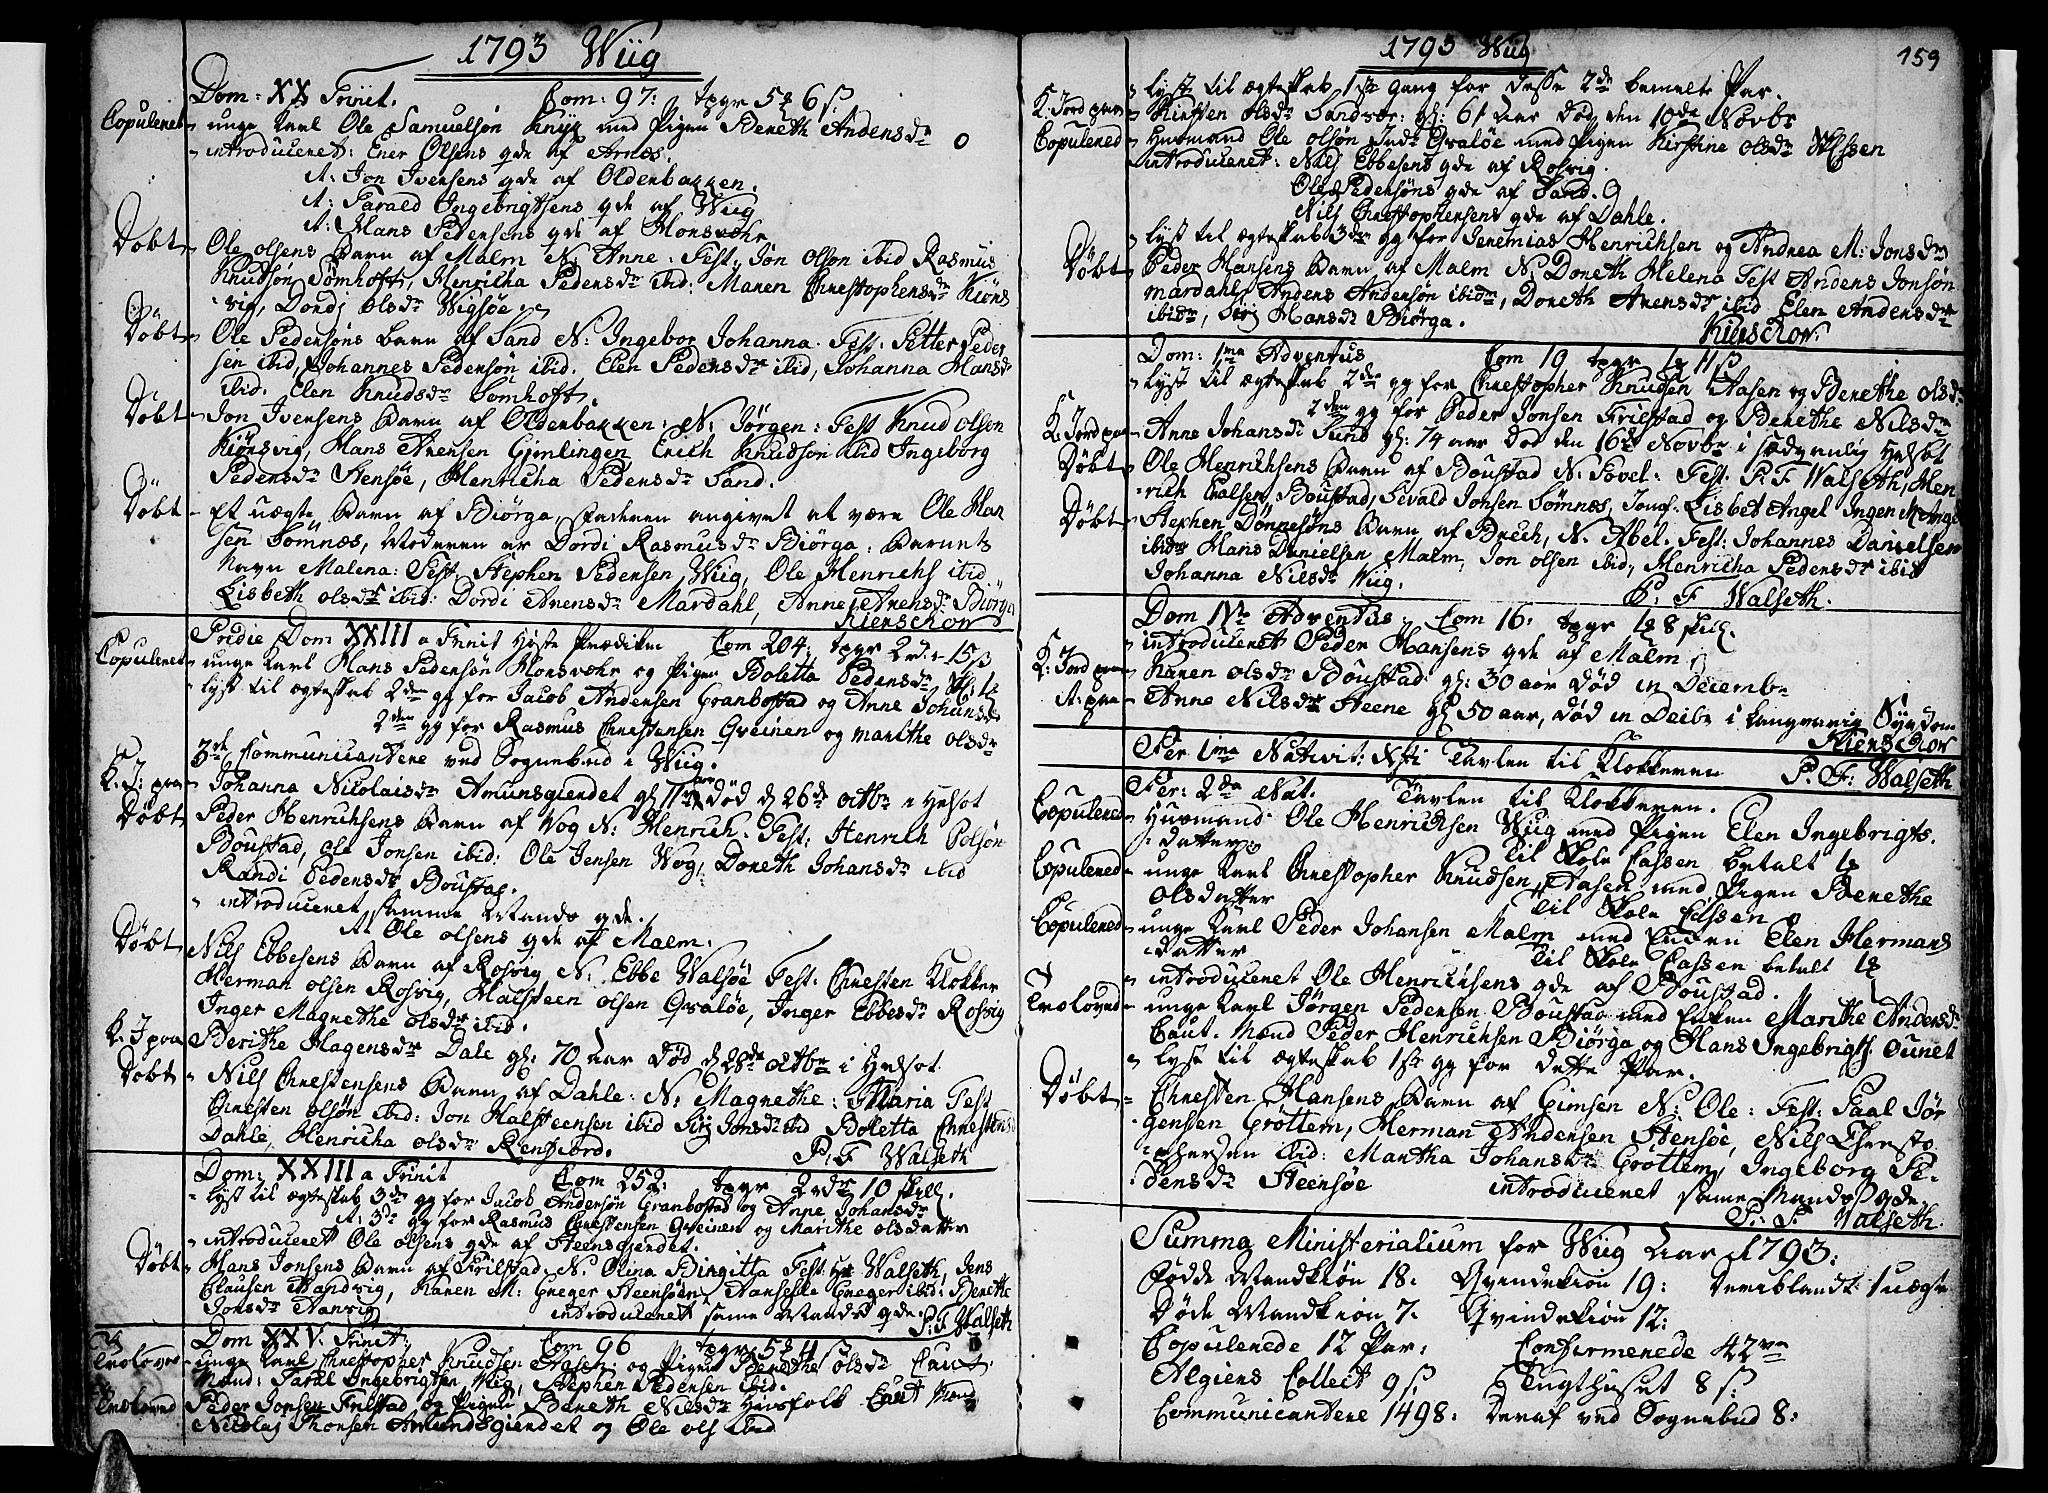 1793 Wiig
Dom: XX Trinit. Com: 97: tavr 5 6 s
Copuleret unge Karl Ole Samuelsøn med Pigen Bereth Andersdr
introduceret: Ener Olsens qde af Arnæs.
It: Jon Iversens qde af Oldenbakken.
It: Tarald Ingebrigtsens qde af Wiig
It: Hans Pedersens qde af
Døbt Ole olsens Barn af Malm N: Anne: Test: Jon olson ibid Rasmus
Knudsøn Sømhoft, Henricha Pedersdr ibid: Maren Christophersdr Kiøns
vig, Dordj olsdr Wigsøe.
Døbt Ole Pedersøns Barn af Sand N: Ingebor Johanna. Test: Petter Peder
sen ibid, Johannes Pedersøn ibid. Elen Pedersdr ibid, Johanna Hansdr
ibid. Elen Knudsdr Sømhoft.
Døbt Jon Iversens Barn af Oldenbakken: N: Jørgen: Test Knud olsen
Kiønsvig, Hans Arensen Gimlingen Erich Knudson ibid Ingeborg
Pedersdr Stensøe, Henricha Pedersdr Sand.
Døbt Et uægte Barn af Biørga, Faderen angivet at være Ole Han
sen Sømnæs, Moderen er Dordi Rasmusdr Biørga: Barnets
Navn Malena: Test: Stephen Pedersen Wiig, Ole Henrichs ibid
Lisbeth olsdr ibid: Dordi Arensdr Mardahl, Anne Arensdr Biørga
Kierschow
Pridie Dom XXIII a Trinit Høste Prædiken Com 204: tavr 2 rdr 15 s
Copuleret unge Karl Hans Pedersøn og Pigen Boletta Pedersdr
lyst til ægteskab 2den gg for Jacob Andersen Granbostad og Anne Johansdr
2den gg for Rasmus Christensen Qveinen og Marithe olsdr
3de Communicantere ved Sognebud i Wiig.
K: J: paa Johanna Nicolaisdr Amunsgiendet gl 11 aar død d 26de octbr i Helsot
Døbt Peder Henrichsens Barn af Vog N: Henrich. Test: Henrich Polsøn
Boustad, ole Jonsen ibid: Ole Jensen Wog, Doreth Johansdr ibid
Randi Pedersdr Boustad.
introduceret samme Mands qde.
It Ole olsens qde af Malm.
Døbt Nils Ebbesens Barn af Rosvig N: Ebbe Walsøe Test: Christen Klokker
Herman olsen Rosvig, Halsteen olsen Qvaløe, Inger Ebbesdr Rosvig
Inger Magrethe olsdr ibid.
K: J paa Berithe Hagensdr Dale gl: 70 Aar død d 28de octbr i Helsot.
Døbt Nils Christensens Barn af Dahle: N: Magrethe: Maria Test
Christen olsøn ibid: Jon Halsteensen ibid Sirj Jonsdr ibid Boletta Christensd
Dahle, Henricha olsdr Rensiord.
P: F Walseth
Dom: XXIII a Trinit Com 252: tavr 2 rdr 10 skill.
lyst til ægteskab 3de gg for Jacob Andersøn Granbostad og Anne Johansdr
It: 3de gg for Rasmus Christensen Qveinen og Marithe olsdatter
introduceret Ole olsens qde af Steensgiendet.
Døbt Hans Jonsens Barn af Frilstad. N. Olina Birgitta Test: Walseth, Jens
Clausen Handvig, Karen M: Greger Steensøen Greger ibid: Berette
Jonsdr introduceret same Mands qde. P: F Walseth
Dom XXV. Trinit: Com 96 tavr 5 4 s
Troloved unge Karl Christopher Knudsen Aasen og Pigen Berethe olsdr Caut
Mænd: Taral Ingebrigtsen Wiig, Stephen Pedersen ibid.
Troloved Peder Jonsen Frilstad og Pigen Bereth Nilsdr Huusfolk Caut Mænd
Nicolaj Thonsen Amundsgiendet og Ole ols ibid
1793 Wiig 159
lyst til ægteskab 1ste gang for desse 2de bemelte Par.
K: Jord paa Kirsten olsdr Sandvær: gl: 61 Aar død den 10de Novbr
Copulered Husmand Ole olsøn Indr Qvaløe med Pigen Kirstine olsdr
introduceret: Nils Ebbesens qde af Rosvig.
Ole Pedersøns qde af Sand.
Nils Christophersens qde af Dahle.
lyst til ægteskab 3die gg for Jeremias Henrichsen og Andrea M: Jonsdr
Døbt Peder Hansens Barn af Malm N: Doreth Helena Test Anders Jonsøn
Mardahl, Anders Andersøn ibidm, Doreth Arensdr ibid Elen Andersdr
ibidm, Sirj Hansdr Biørga.
Kierschow.
Dom: 1ma Adventus Com 19 tavr 1 11 s
lyst til ægteskab 2den gg for Christopher Knudsen Aasen og Berethe olsdr
2den gg for Peder Jonsen Frilstad og Berethe Nilsdr
K: Jord paa Anne Johansdr Sund gl: 74 aar død den 16de Novbr i sædvanlig Helsot
Døbt Ole Henrichsens Barn af Boustad N. Povel: Test. P: F Walseth, Hen
rich Boustad, Sevald Jonsen Sømnes, Jomf. Lisbet Angel Inger M: Angel
Døbt Stephen Dønnesøns Barn af Brech, N. Abel. Test: Johannes Danielsen
ibidm Hans Danielsen Malm, Jon olsen ibid, Henricha Pedersdr ibid
Johanna Nilsdr Wiig.
P: F Walseth.
Dom IVta Adventus Com 16: tavr 1 8 skil.
introduceret Peder Hansens qde af Malm
K: Jord paa Karen olsdr Boustad gl: 30 aar død in Decembr
It: paa Anne Nilsdr Steene gl 50 aar, død in Decbr i langvarig Sygdom
Kierschow
Fer 1ma Nativit: Xsti Tavlen til Klokkeren P: F: Walseth
Fer: 2da Nat. Tavlen til Klokkeren.
Copulered Husmand Ole Henrichsen Wiig med Pigen Elen Ingebrigts
datter Til Skole Cassen betalt 1
Copulered unge Karl Christopher Knudsen Aasen med Pigen Berethe
Olsdatter Til Skole Cassen
Copulered unge Karl Peder Johansen Malm med Enken Elen Hermans
datter Til Skole Cassen betalt 1
introduceret Ole Henrichsens qde af Boustad.
Troloved unge Karl Jørgen Pedersen Boustad med Enken Marithe Andersdr
Caut. Mænd Peder Henrichsen Biørga og Hans Ingebrigts. Ounet
lyst til ægteskab 1ste gg for dette Par.
Døbt Christen Hansens Barn af Gimsen N: Ole: Test: Paal Jør
gensen Grøttem, Herman Andersen Stensøe, Nils Christo
phersen ibid: Martha Johansdr Grøttem, Ingeborg Pe
dersdr Steensøe introduceret same Mands qde
P: F. Walseth.
Summa Ministerialium for Wiig Aar 1793:
Fødde Mandkiøn 18: Qvindekiøn 19: deriblandt 1 uægte
Døde Mandkiøn 7. Qvindekiøn 12:
Copulerede 12 Par: Confirmerede 42ve
Algiers Collect 9 s: Tugthuset 8 s:
Communicantere 1498: deraf ved Sognebud 8: